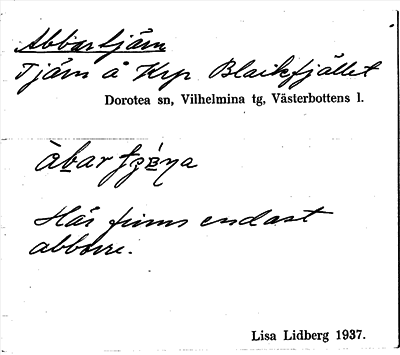 Abbartjärn
Tjärn å Krp Blaikfjället
Dorotea sn, Vilhelmina tg, Västerbottens l.
àbar
Här finns endast
abborre.
Lisa Lidberg 1937.